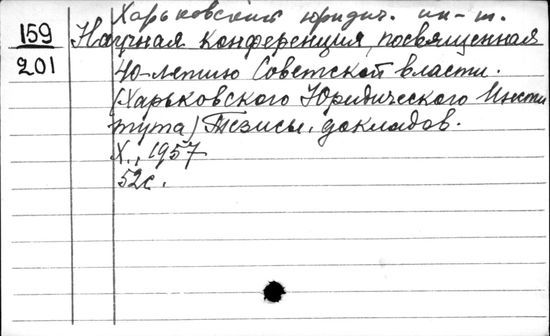 Харьковский юридич. ин-т.
159
201
Научная конференция, посвященная
40-летию Советской власти.
(Харьковского Юридического Инсти
тута) Тезисы докладов.
Х., 1957
52с.